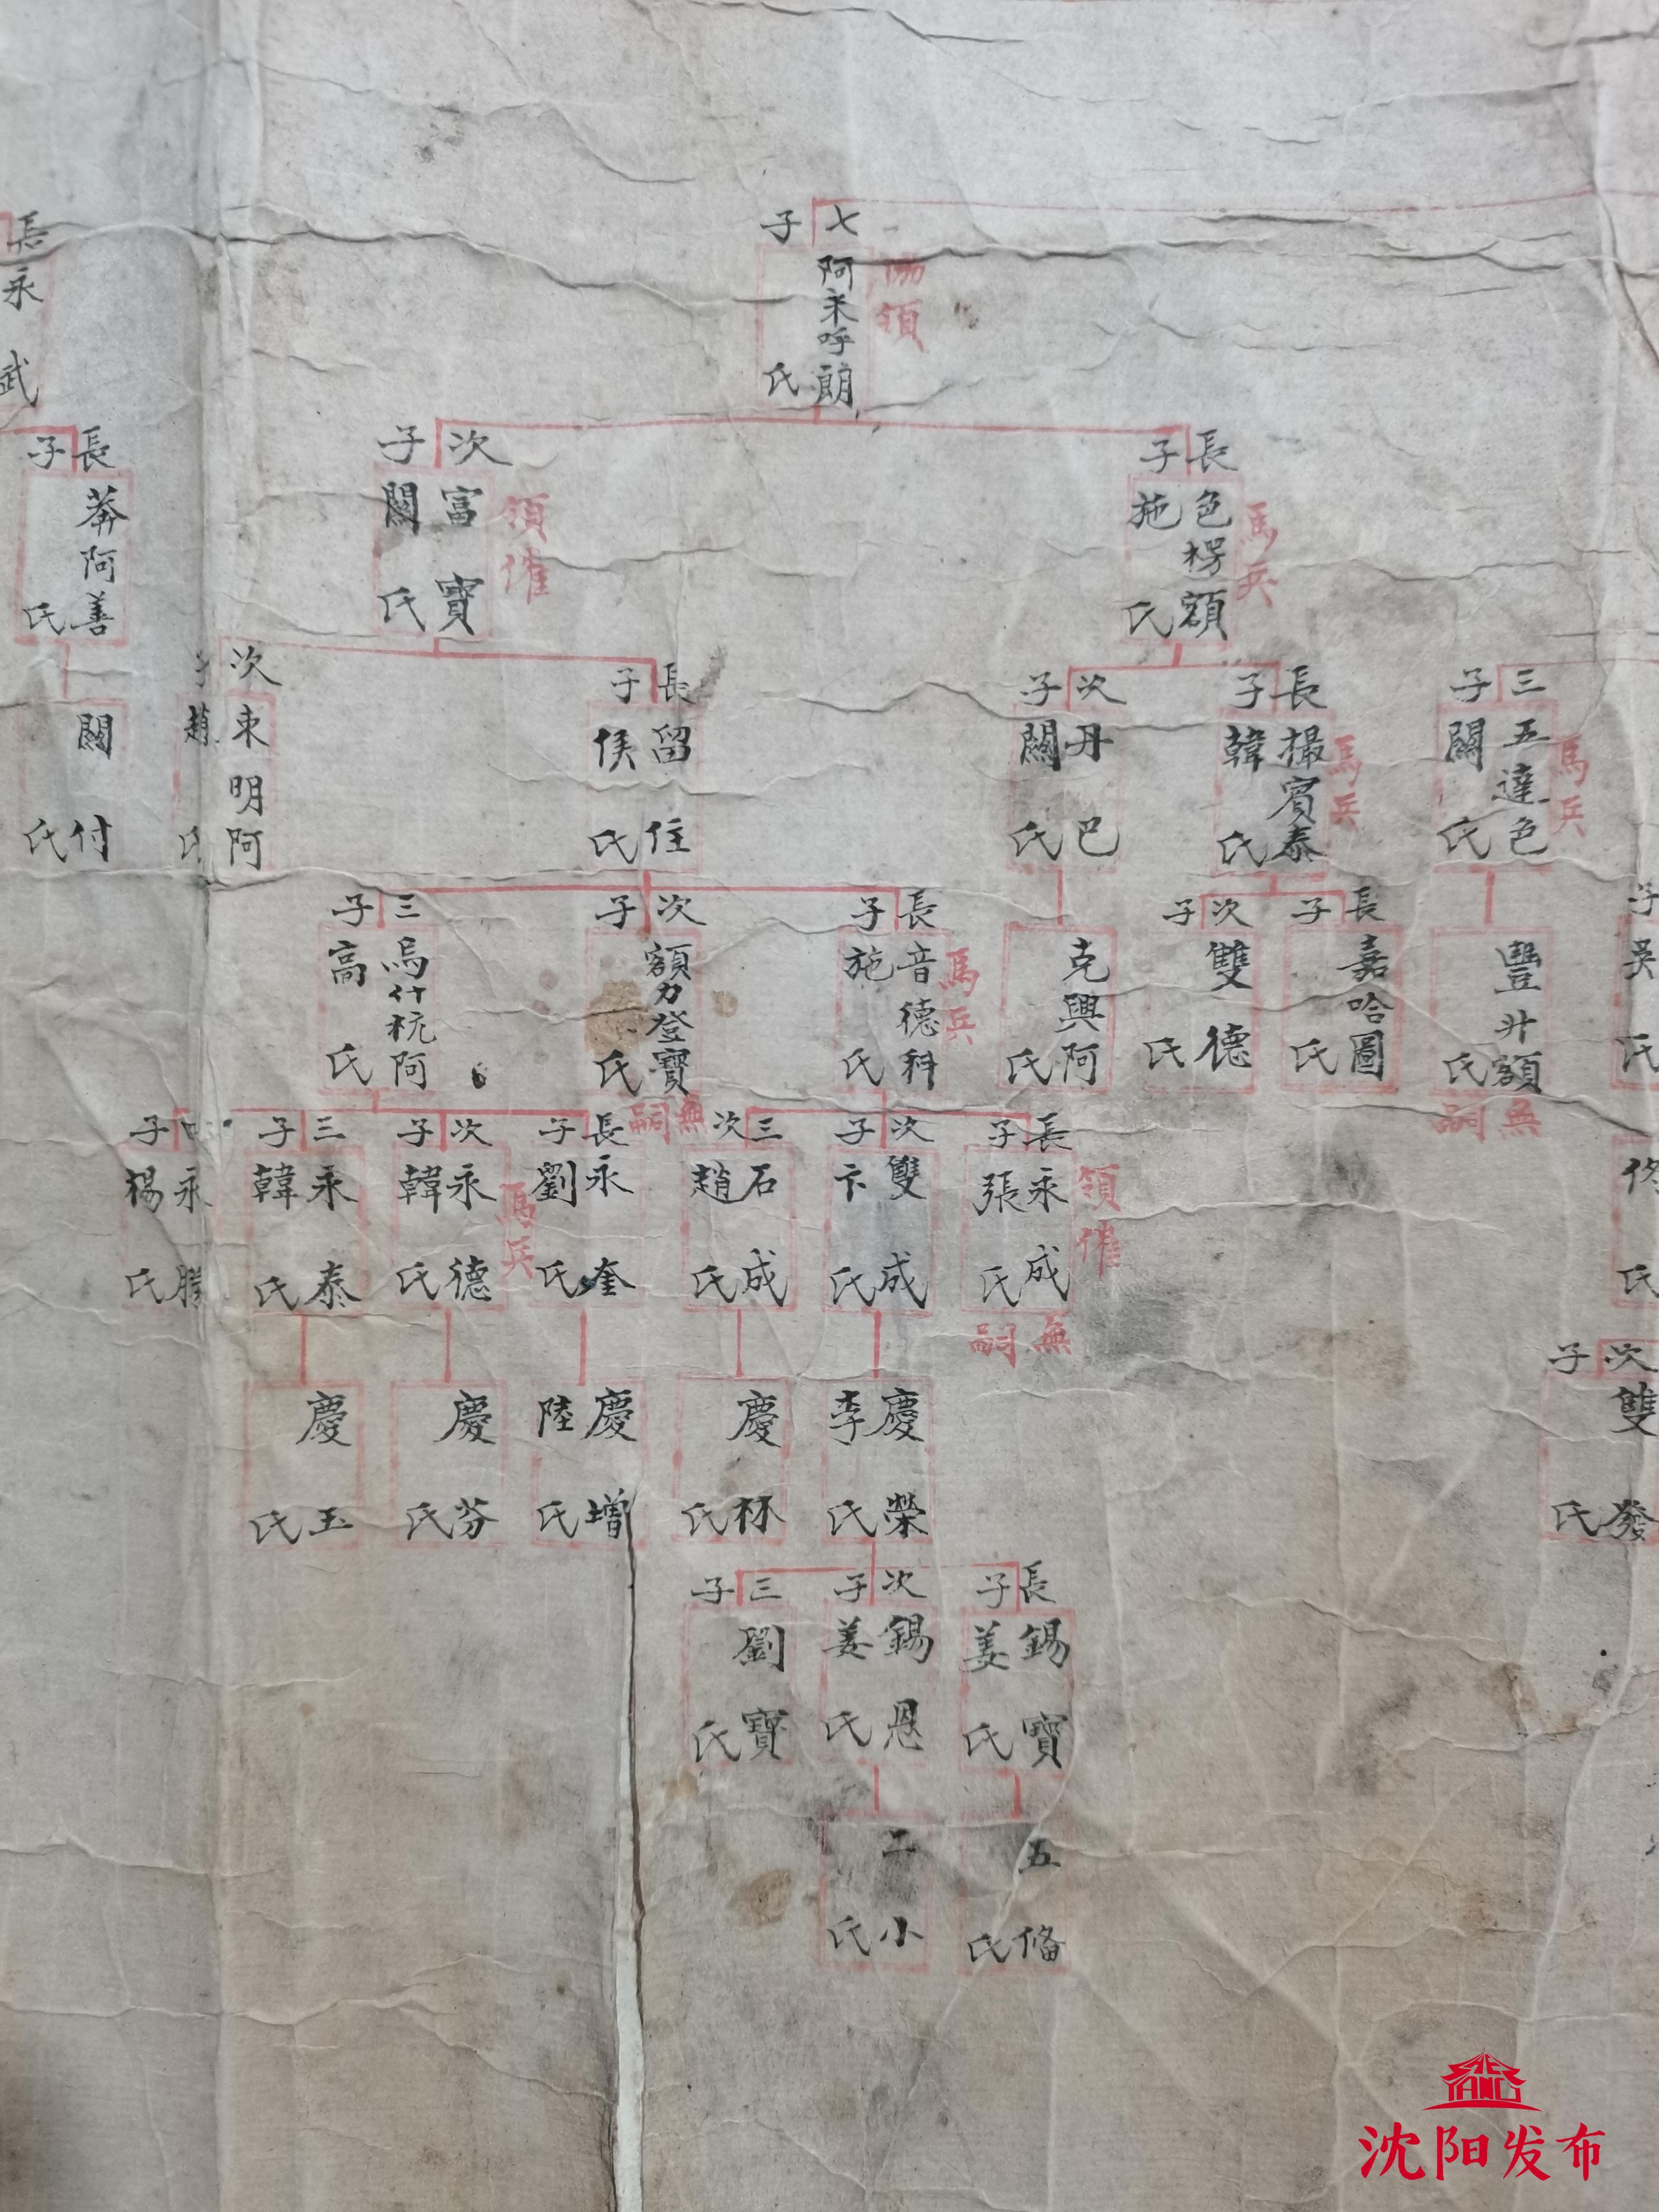 七子
協領
阿来呼朗
氏
長子
馬兵
色楞額
施氏
次子
領催
富寶
關氏
長永武
長子
莽阿善
氏
三子
馬兵
五達色
關氏
長子
馬兵
撮賓泰
韓氏
次子
丹巴
關氏
長子
留住
侯氏
次子
束明阿
趙氏
關付
氏
子
吳氏
豐升額
氏
無嗣
長子
嘉哈圖
氏
次子
雙德
氏
克興阿
氏
長子
馬兵
音德科
施氏
次子
額力登寶
氏
無嗣
三子
烏什杭阿
高氏
佟氏
長子
領催
永成
張氏
無嗣
次子
雙成
卞氏
三次
石成
趙氏
長子
永奎
劉氏
次子
馬兵
永德
韓氏
三子
永泰
韓氏
子
永勝
楊氏
次子
雙發
氏
慶榮
李氏
慶林
氏
慶增
陸氏
慶芬
氏
慶玉
氏
長子
錫寶
姜氏
次子
錫恩
姜氏
三子
劉寶
氏
五俻
氏
二小
氏
沈阳发布